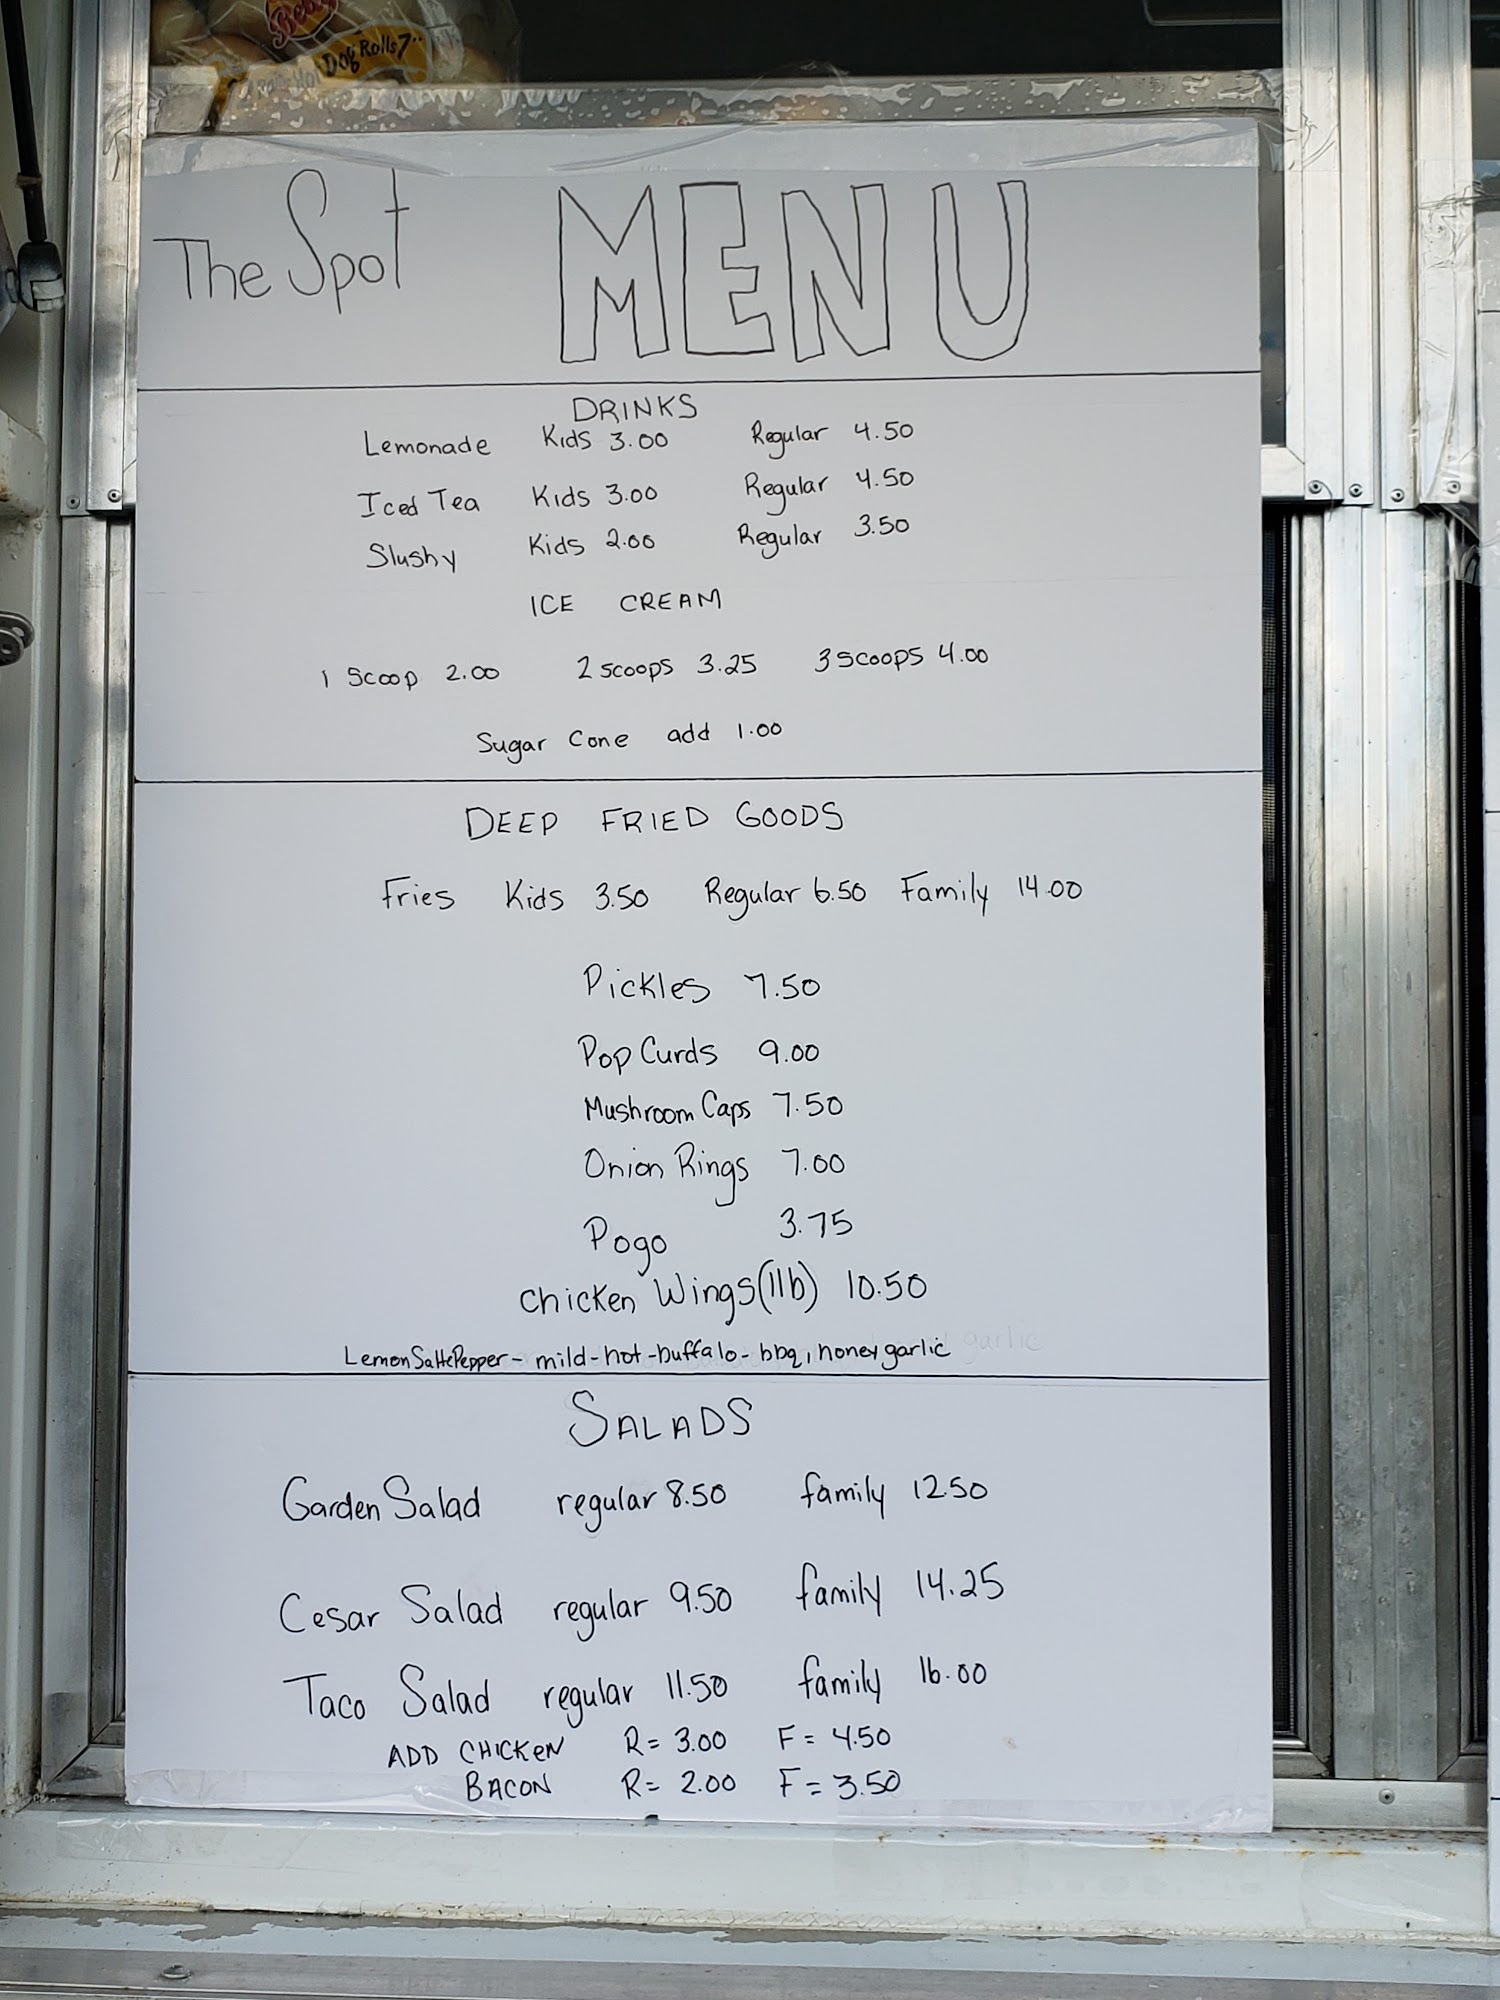 Dog Rolls 7"
The Spot MENU
DRINKS
Lemonade Kids 3.00 Regular 4.50
Iced Tea Kids 3.00 Regular 4.50
Slushy Kids 2.00 Regular 3.50
ICE CREAM
1 Scoop 2.00 2 scoops 3.25 3 scoops 4.00
Sugar Cone add 1.00
DEEP FRIED GOODS
Fries Kids 3.50 Regular 6.50 Family 14.00
Pickles 7.50
Pop Curds 9.00
Mushroom Caps 7.50
Onion Rings 7.00
Pogo 3.75
Chicken Wings (1lb) 10.50
Lemon Salt&Pepper - mild - hot - buffalo - bbq, honey garlic
SALADS
Garden Salad regular 8.50 family 12.50
Cesar Salad regular 9.50 family 14.25
Taco Salad regular 11.50 family 16.00
ADD CHICKEN R = 3.00 F = 4.50
BACON R = 2.00 F = 3.50